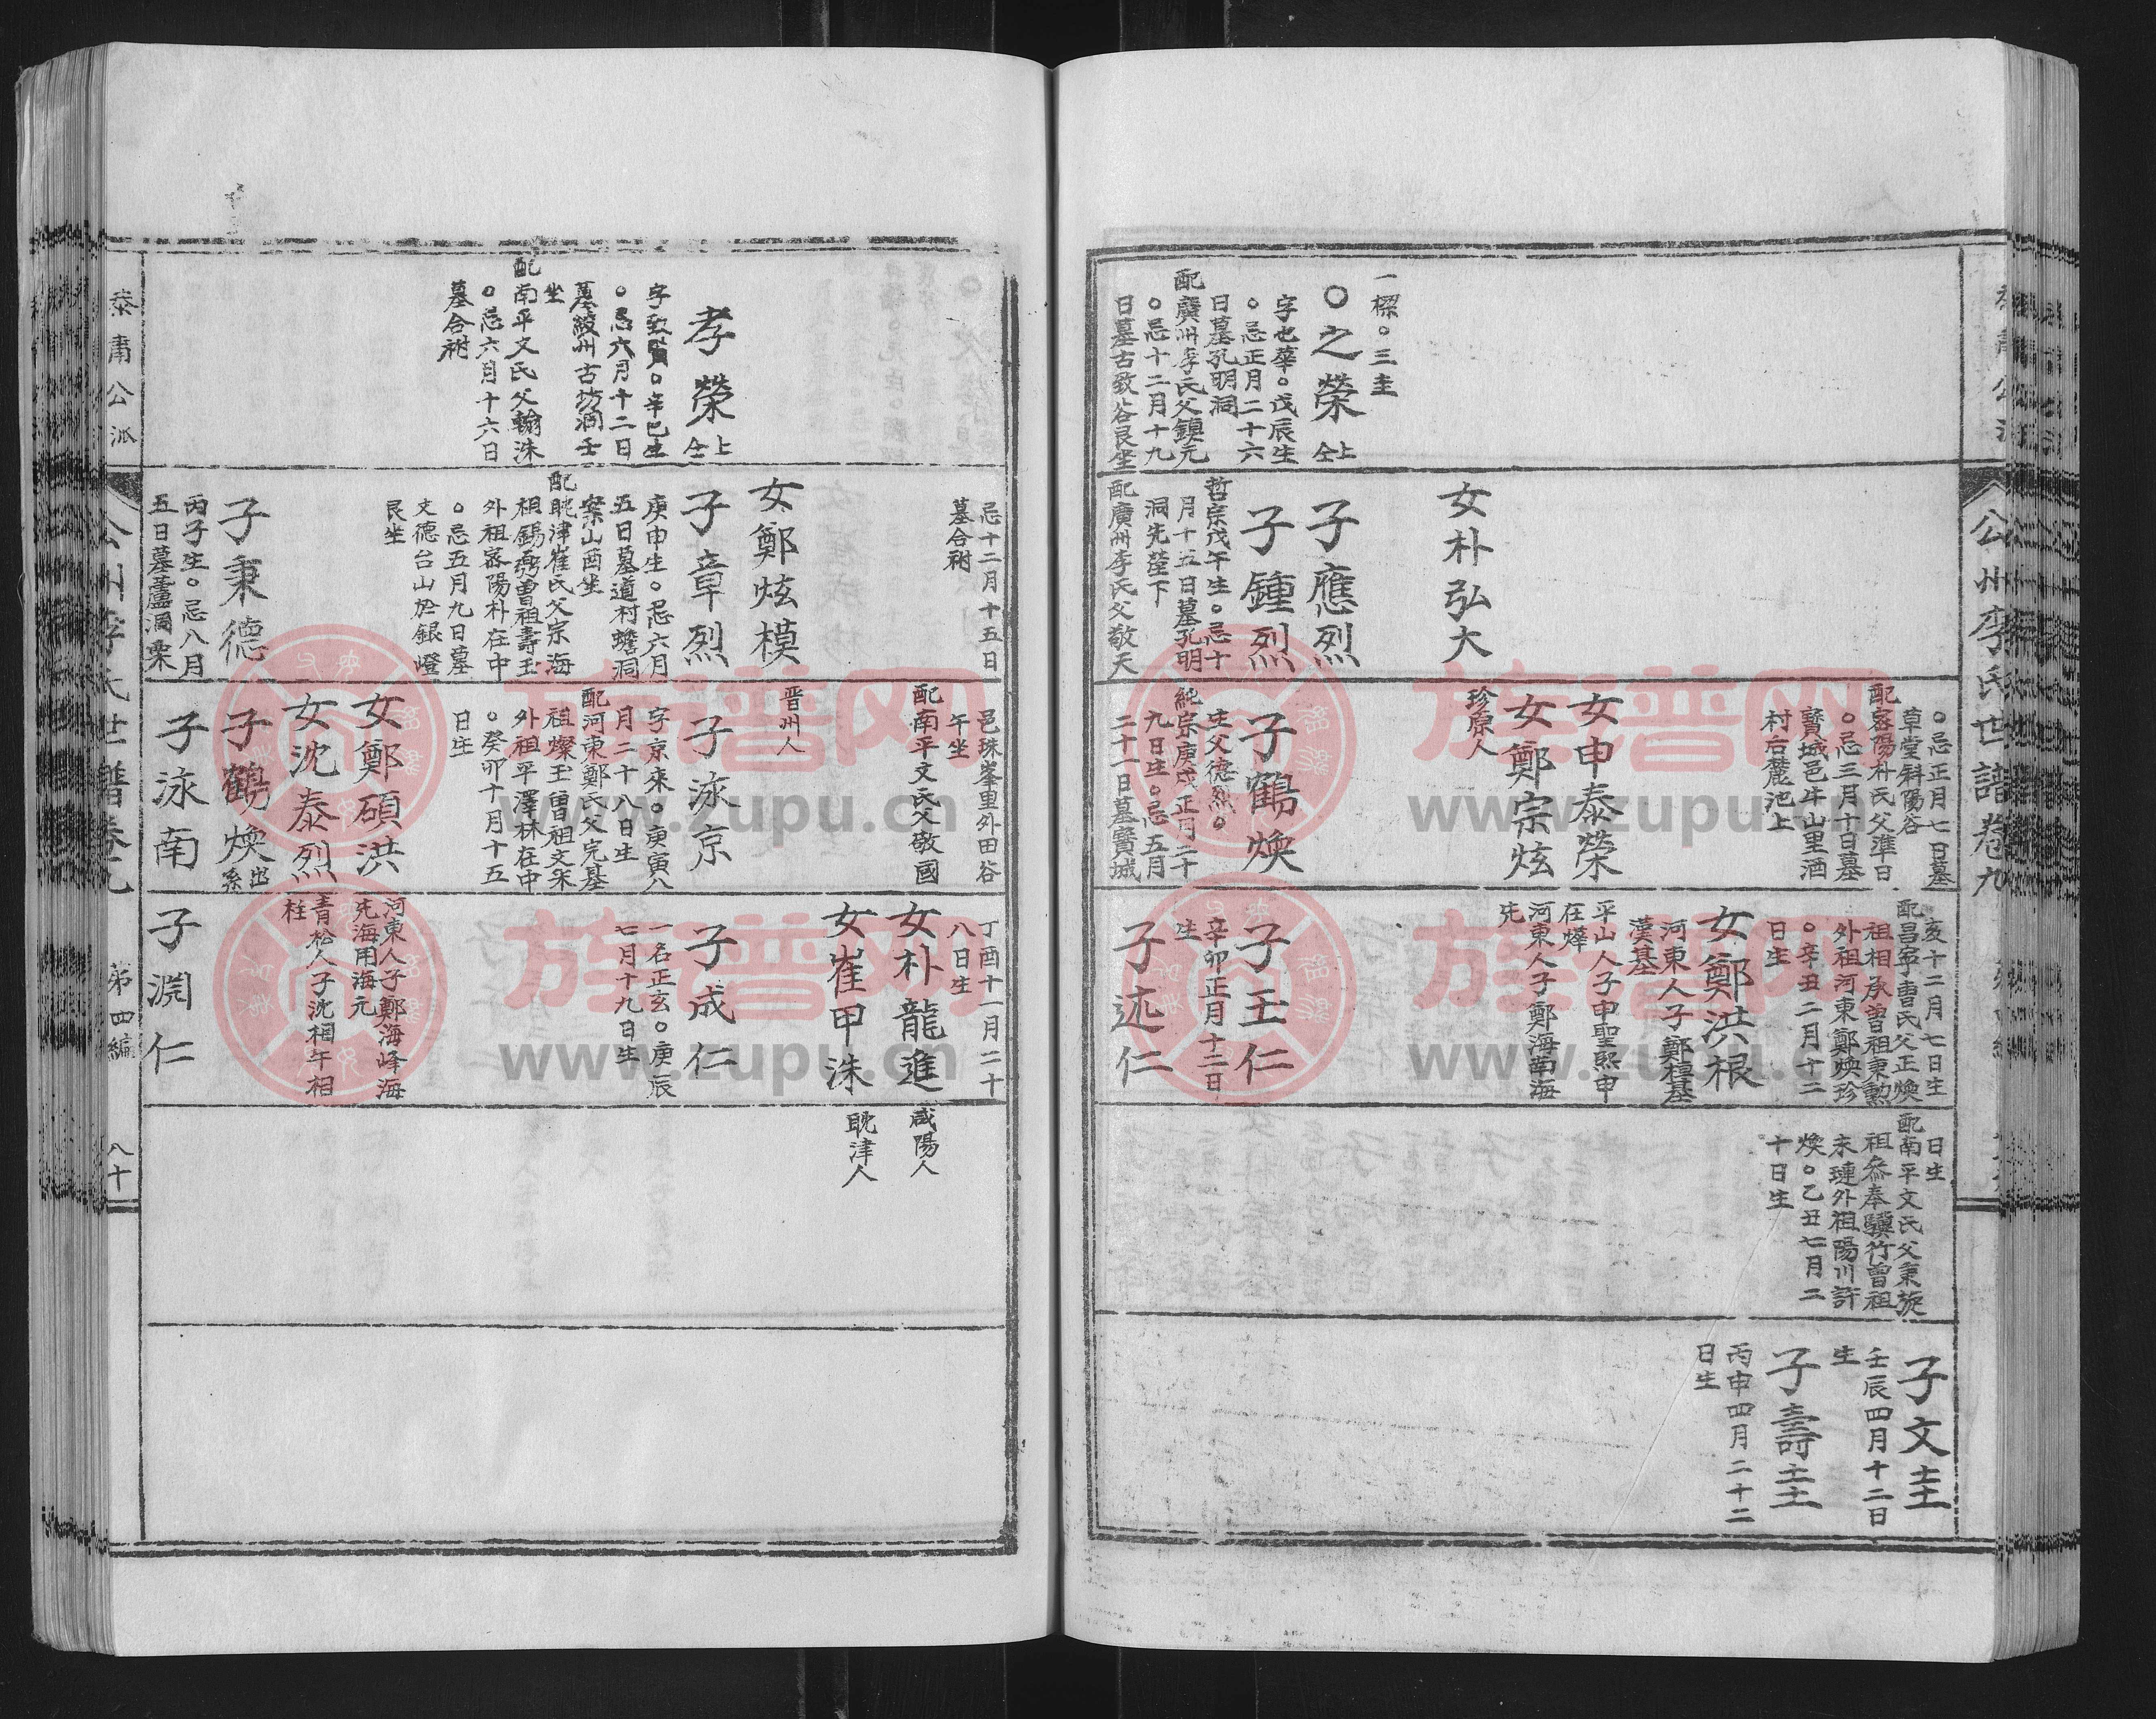 公州李氏世譜卷九
一檡○三圭
○之榮 仝上
字也華○戊辰生
○忌正月二十六
日墓孔明洞
配廣州李氏父鎮元
○忌十二月十九
日墓古致谷艮坐
女朴弘大
子應烈
子鍾烈
哲宗戊午生○忌十
月十五日墓孔明
洞先塋下
配廣州李氏父敬天
○忌正月七日墓
草堂斜陽谷
配密陽朴氏父準日
○忌三月十日墓
寶城邑牛山里酒
村后麓池上
女申泰榮
女鄭宗炫
珍原人
子鶴煥
生父德烈○
純宗庚戌正月二十
九日生○忌五月
二十一日墓寶城
亥十二月七日生
配昌寧曺氏父正煥
祖相承曾祖秉勲
外祖河東鄭煥珍
○辛丑二月十二
日生
女鄭洪根
河東人子鄭楨基
漢基
平山人子申聖熙申
在燁
河東人子鄭海南海
先
子玉仁
辛卯正月十二日
生
子述仁
日生
配南平文氏父秉旋
祖參奉驥竹曾祖
永璉外祖陽川許
煥○乙丑七月二
十日生
子文圭
壬辰四月十二日
生
子壽圭
丙申四月二十二
日生
孝榮 仝上
字致賢○辛巳生
○忌六月十二日
墓綾州古坊洞壬
坐
配南平文氏父翰洙
○忌六月十六日
墓合祔
忌十二月十五日
墓合祔
女鄭炫模
子章烈
庚申生○忌六月
五日墓道村蟾洞
案山酉坐
配耽津崔氏父宗海
祖錫彛曾祖壽玉
外祖密陽朴在中
○忌五月九日墓
文德台山於銀嶝
艮坐
子秉德
丙子生○忌八月
五日墓蘆洞栗
邑珠峯里外田谷
午坐
配南平文氏父敬國
晋州人
子泳京
字京來○庚寅八
月二十八日生
配河東鄭氏父完基
祖燦玉曾祖文采
外祖平澤林在中
○癸卯十月十五
日生
女鄭碩洪
女沈泰烈
子鶴煥 出系
子泳南
丁酉十一月二十
八日生
女朴龍進
女崔甲洙
子成仁
一名正玄○庚辰
七月十九日生
河東人子鄭海峰海
先海用海元
青松人子沈相午相
柱
子淵仁
咸陽人
耽津人
泰肅公派
公州李氏世譜卷九
第四編
八十
族譜网
www.zupu.cn
族譜网
www.zupu.cn
族譜网
www.zupu.cn
族譜网
www.zupu.cn